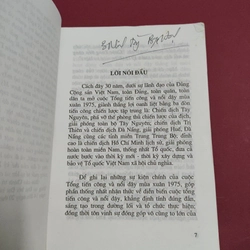 LỜI NÓI ĐẦU
Cách đây 30 năm, dưới sự lãnh đạo của Đảng
Cộng sản Việt Nam, toàn Đảng, toàn quân, toàn
dân ta mở cuộc Tổng tiến công và nổi dậy mùa
xuân 1975, giành thắng lợi oanh liệt bằng ba đòn
tiến công chiến lược tập trung là: chiến dịch Tây
Nguyên, phá vỡ thế phòng thủ chiến lược của địch,
giải phóng toàn bộ Tây Nguyên; chiến dịch Trị
Thiên và chiến dịch Đà Nẵng, giải phóng Huế, Đà
Nẵng cùng các tỉnh miền Trung Trung Bộ; đỉnh
cao là chiến dịch Hồ Chí Minh lịch sử, giải phóng
hoàn toàn miền Nam, thống nhất Tổ quốc, đưa cả
nước bước vào thời kỳ mới - thời kỳ xây dựng và
bảo vệ Tổ quốc Việt Nam xã hội chủ nghĩa.
Để ghi lại những sự kiện chính của cuộc
Tổng tiến công và nổi dậy mùa xuân 1975,
góp phần thống nhất nhận thức về diễn biến cuộc
tiến công và nổi dậy, khẳng định tính đúng đắn,
sáng tạo trong đường lối và tổ chức thực hiện
đồng thời tôn vinh sự đóng góp vô cùng to lớn của
7